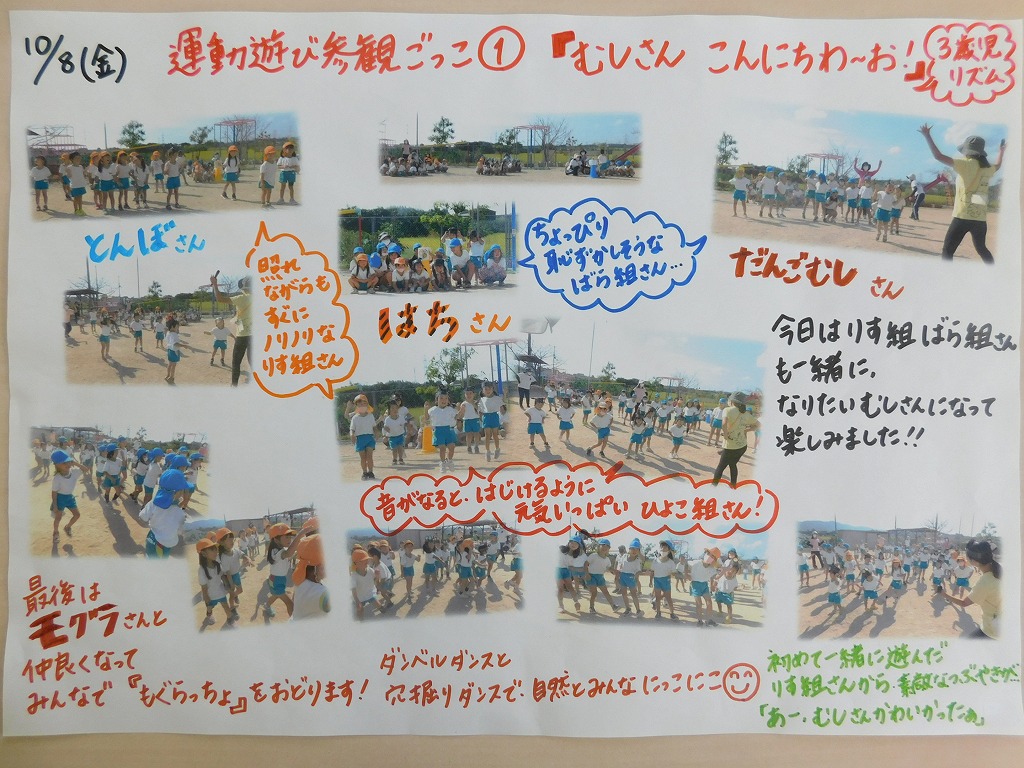 10/8(金)
運動遊び参観ごっこ① 『むしさん こんにちわ〜お!』
3歳児
リズム
とんぼさん
照れ
ながらも
すぐに
ノリノリな
りす組さん
はちさん
ちょっぴり
恥ずかしそうな
ばら組さん…
だんごむしさん
今日はりす組ばら組さん
も一緒に、
なりたいむしさんになって
楽しみました!!
音がなると、はじけるように
元気いっぱい ひよこ組さん!
最後は
モグラさんと
仲良くなって
みんなで『もぐらっちょ』をおどります!
ダンベルダンスと
穴掘りダンスで、自然とみんなにっこにこ
初めて一緒に遊んだ
りす組さんから、素敵なつぶやきが…
「あー、むしさんかわいかったぁ」